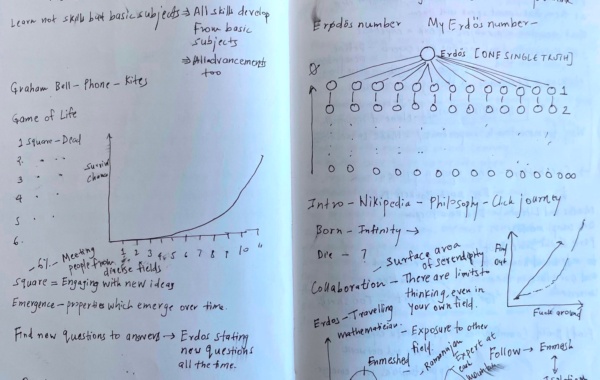 Learn not skills but basic subjects ⇒ All skills develop
from basic
subjects
⇒ All advancements
too
Graham Bell - Phone - Kites
Game of Life
1 square - Dead
2. " "
3 " "
4 " "
5 " "
6.
Survival
chance
1 2 3 4 5 6 7 8 9 10 11
6% - Meeting
people from
diverse fields
Square = Engaging with new ideas
Emergence - properties which emerge over time.
Find new questions to answers → Erdos stating
new questions
all the time.
Erdös number My Erdös number -
Erdös [ONE SINGLE TRUTH]
1
2
Intro - Wikipedia - Philosophy - Click journey
Born - Infinity →
Die - ?
surface area
of serendipity
Collaboration - There are limits to
thinking, even in
your own field.
Find
Out
Fuck around
Erdos - Travelling
mathematician - Exposure to other
field.
Enmeshed
Ramanujan
Expert at
Follow → Enmesh